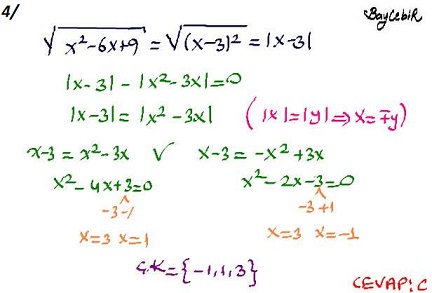 4/
BAYCEBİR
√x²-6x+9 = √(x-3)² = |x-3|
|x-3| - |x²-3x| = 0
|x-3| = |x²-3x| ( |x|=|y| ⇒ x=∓y )
x-3 = x²-3x ∨ x-3 = -x²+3x
x²-4x+3=0 x²-2x-3=0
-3 -1 -3 +1
x=3 x=1 x=3 x=-1
Ç.K={-1,1,3}
CEVAP: C